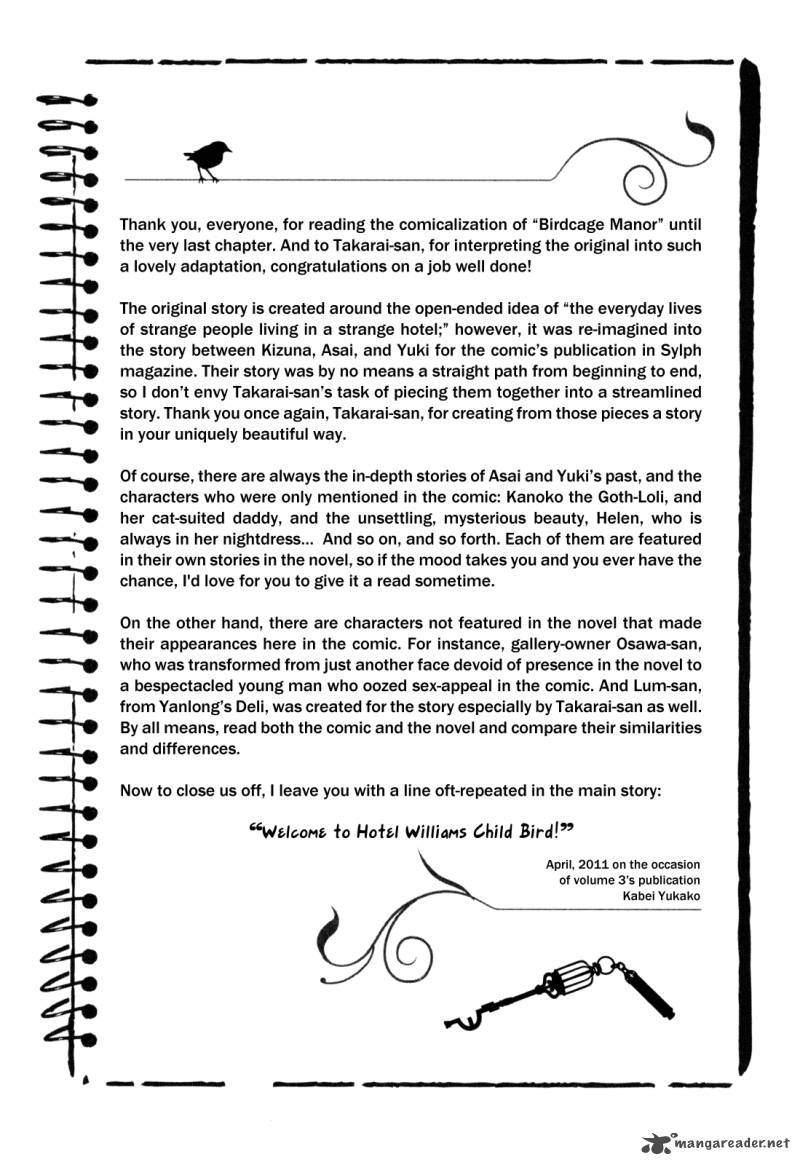 Thank you, everyone, for reading the comicalization of “Birdcage Manor” until
the very last chapter. And to Takarai-san, for interpreting the original into such
a lovely adaptation, congratulations on a job well done!
The original story is created around the open-ended idea of “the everyday lives
of strange people living in a strange hotel;” however, it was re-imagined into
the story between Kizuna, Asai, and Yuki for the comic’s publication in Sylph
magazine. Their story was by no means a straight path from beginning to end,
so I don’t envy Takarai-san’s task of piecing them together into a streamlined
story. Thank you once again, Takarai-san, for creating from those pieces a story
in your uniquely beautiful way.
Of course, there are always the in-depth stories of Asai and Yuki’s past, and the
characters who were only mentioned in the comic: Kanoko the Goth-Loli, and
her cat-suited daddy, and the unsettling, mysterious beauty, Helen, who is
always in her nightdress... And so on, and so forth. Each of them are featured
in their own stories in the novel, so if the mood takes you and you ever have the
chance, I'd love for you to give it a read sometime.
On the other hand, there are characters not featured in the novel that made
their appearances here in the comic. For instance, gallery-owner Osawa-san,
who was transformed from just another face devoid of presence in the novel to
a bespectacled young man who oozed sex-appeal in the comic. And Lum-san,
from Yanlong’s Deli, was created for the story especially by Takarai-san as well.
By all means, read both the comic and the novel and compare their similarities
and differences.
Now to close us off, I leave you with a line oft-repeated in the main story:
“Welcome to Hotel Williams Child Bird!”
April, 2011 on the occasion
of volume 3’s publication
Kabei Yukako
mangareader.net